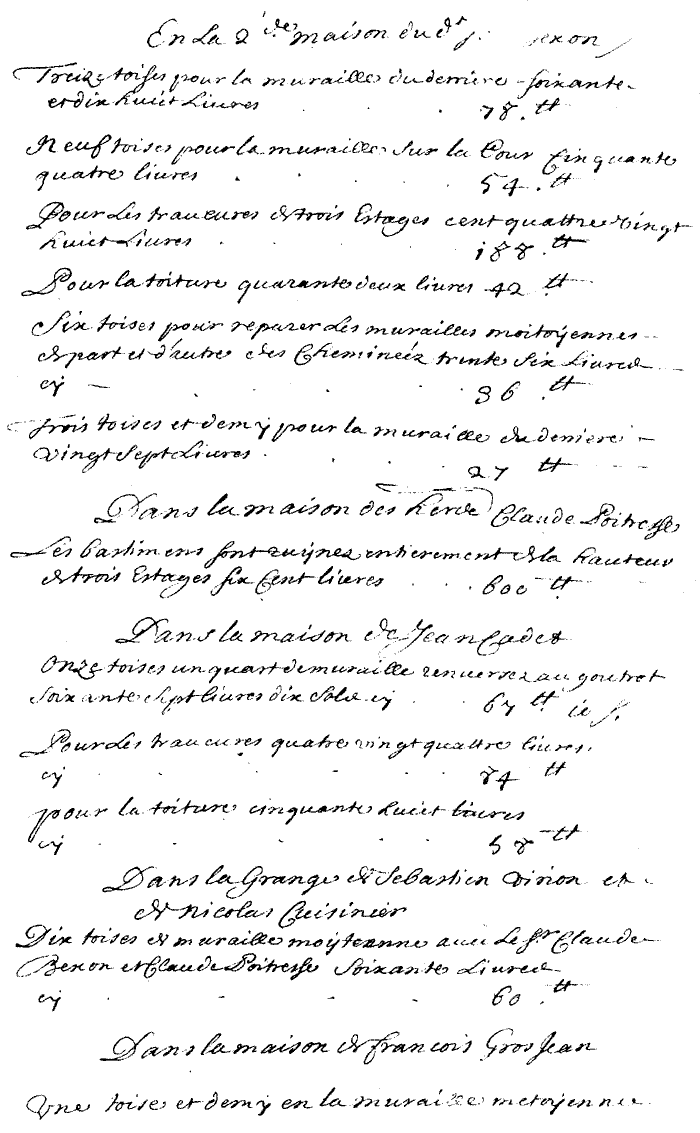 En La 2de maison du dt exon
Treize toises pour la muraille du derriere soixante
et dix huict Livres
78 . tt
Neuf toises pour la muraille sur la Cour Cinquante
quatre livres
54 . tt
Pour Les traueures de trois Estages cent quattre vingt
huict Livres
188 . tt
Pour la toiture quarante deux livres 42 tt
Six toises pour reparer Les murailles moitoÿennes
de part et d'autre des Cheminéez trente Six Livres
cy 36 tt
trois toises et demÿ pour la muraille du deriere
vingt Sept Livres
27 tt
Dans la maison des Claude Poitresse
Les bastimens sont ruÿnez entierement de la hauteur
de trois Estages six Cent livres 600 tt
Dans la maison de Jean Cadet
Onze toises un quart de muraille renuersez au goutrot
soixante sept livres dix sols cy 67 tt 10 s.
Pour Les traueures quatre vingt quattre livres.
cy 84 tt
pour la toiture cinquante huict livres
cy 58 tt
Dans la Grange de Sebastien Virion et
de Nicolas Cuisinier
Dix toises de muraille moÿtenne auec Le Sr Claude
Bexon et Claude Poitresse Soixante Livres
cy 60 . tt
Dans la maison de francois Gros Jean
Vne toise et demÿ en la muraille metoÿenne